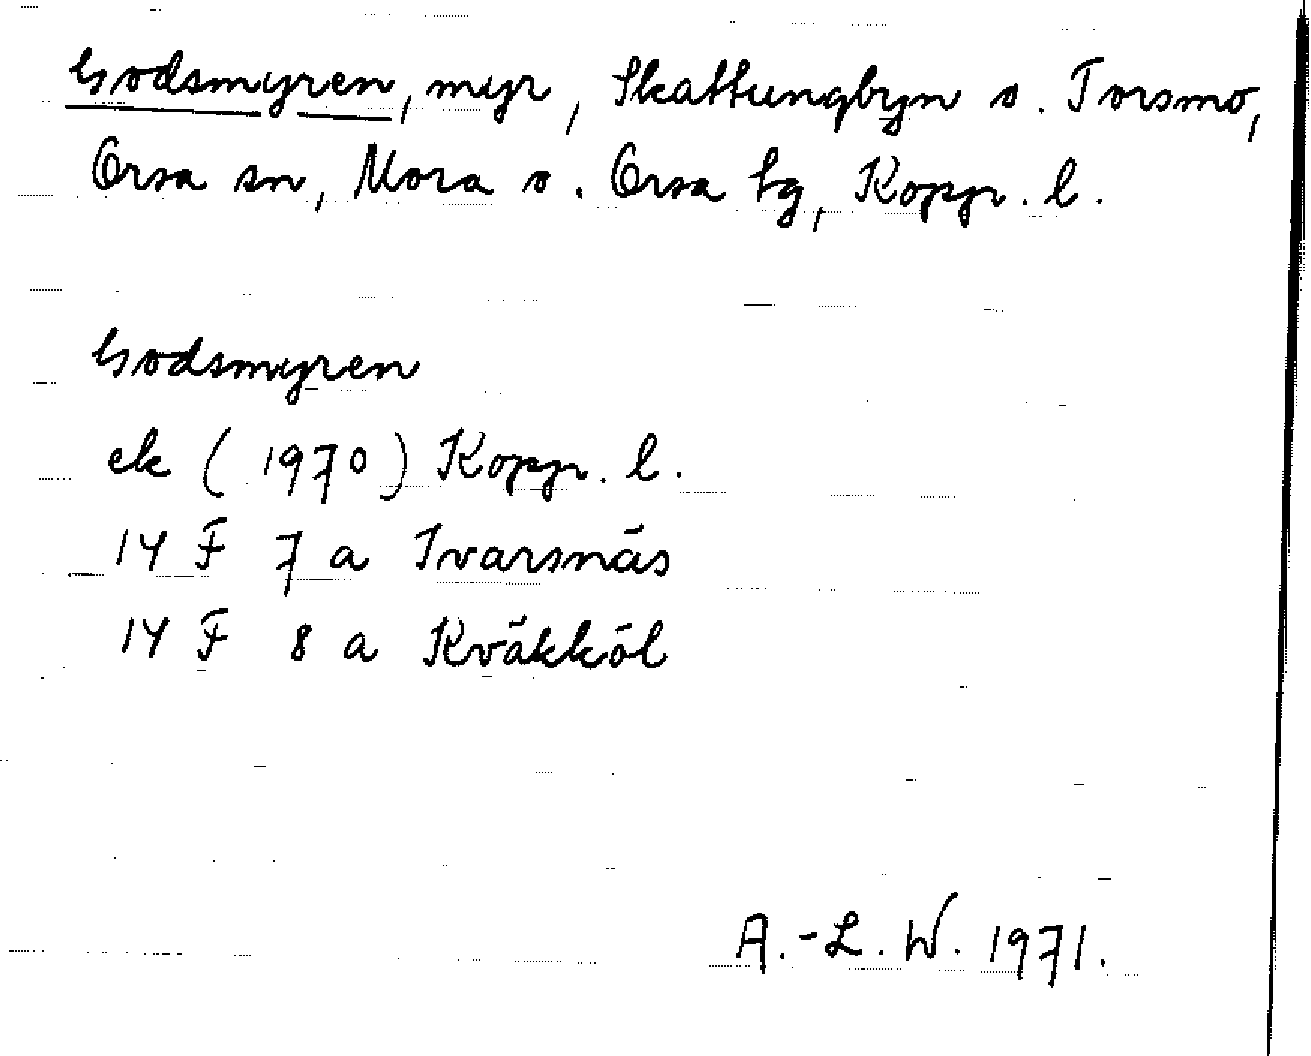 Godsmyren, myr, Skattungbyn o. Torsmo,
Orsa sn, Mora o. Orsa tg, Kopp. l.
Godsmyren
ek (1970) Kopp. l.
14 F 7 a Ivarsnäs
14 F 8 a Kväkköl
A.-L. W. 1971.